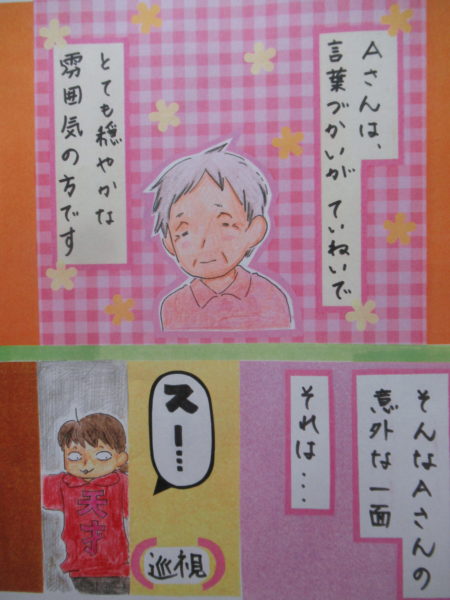 Aさんは、
言葉づかいが ていねいで
とても穏やかな
雰囲気の方です
そんなAさんの
意外な一面
それは…
スー…
巡視
天才